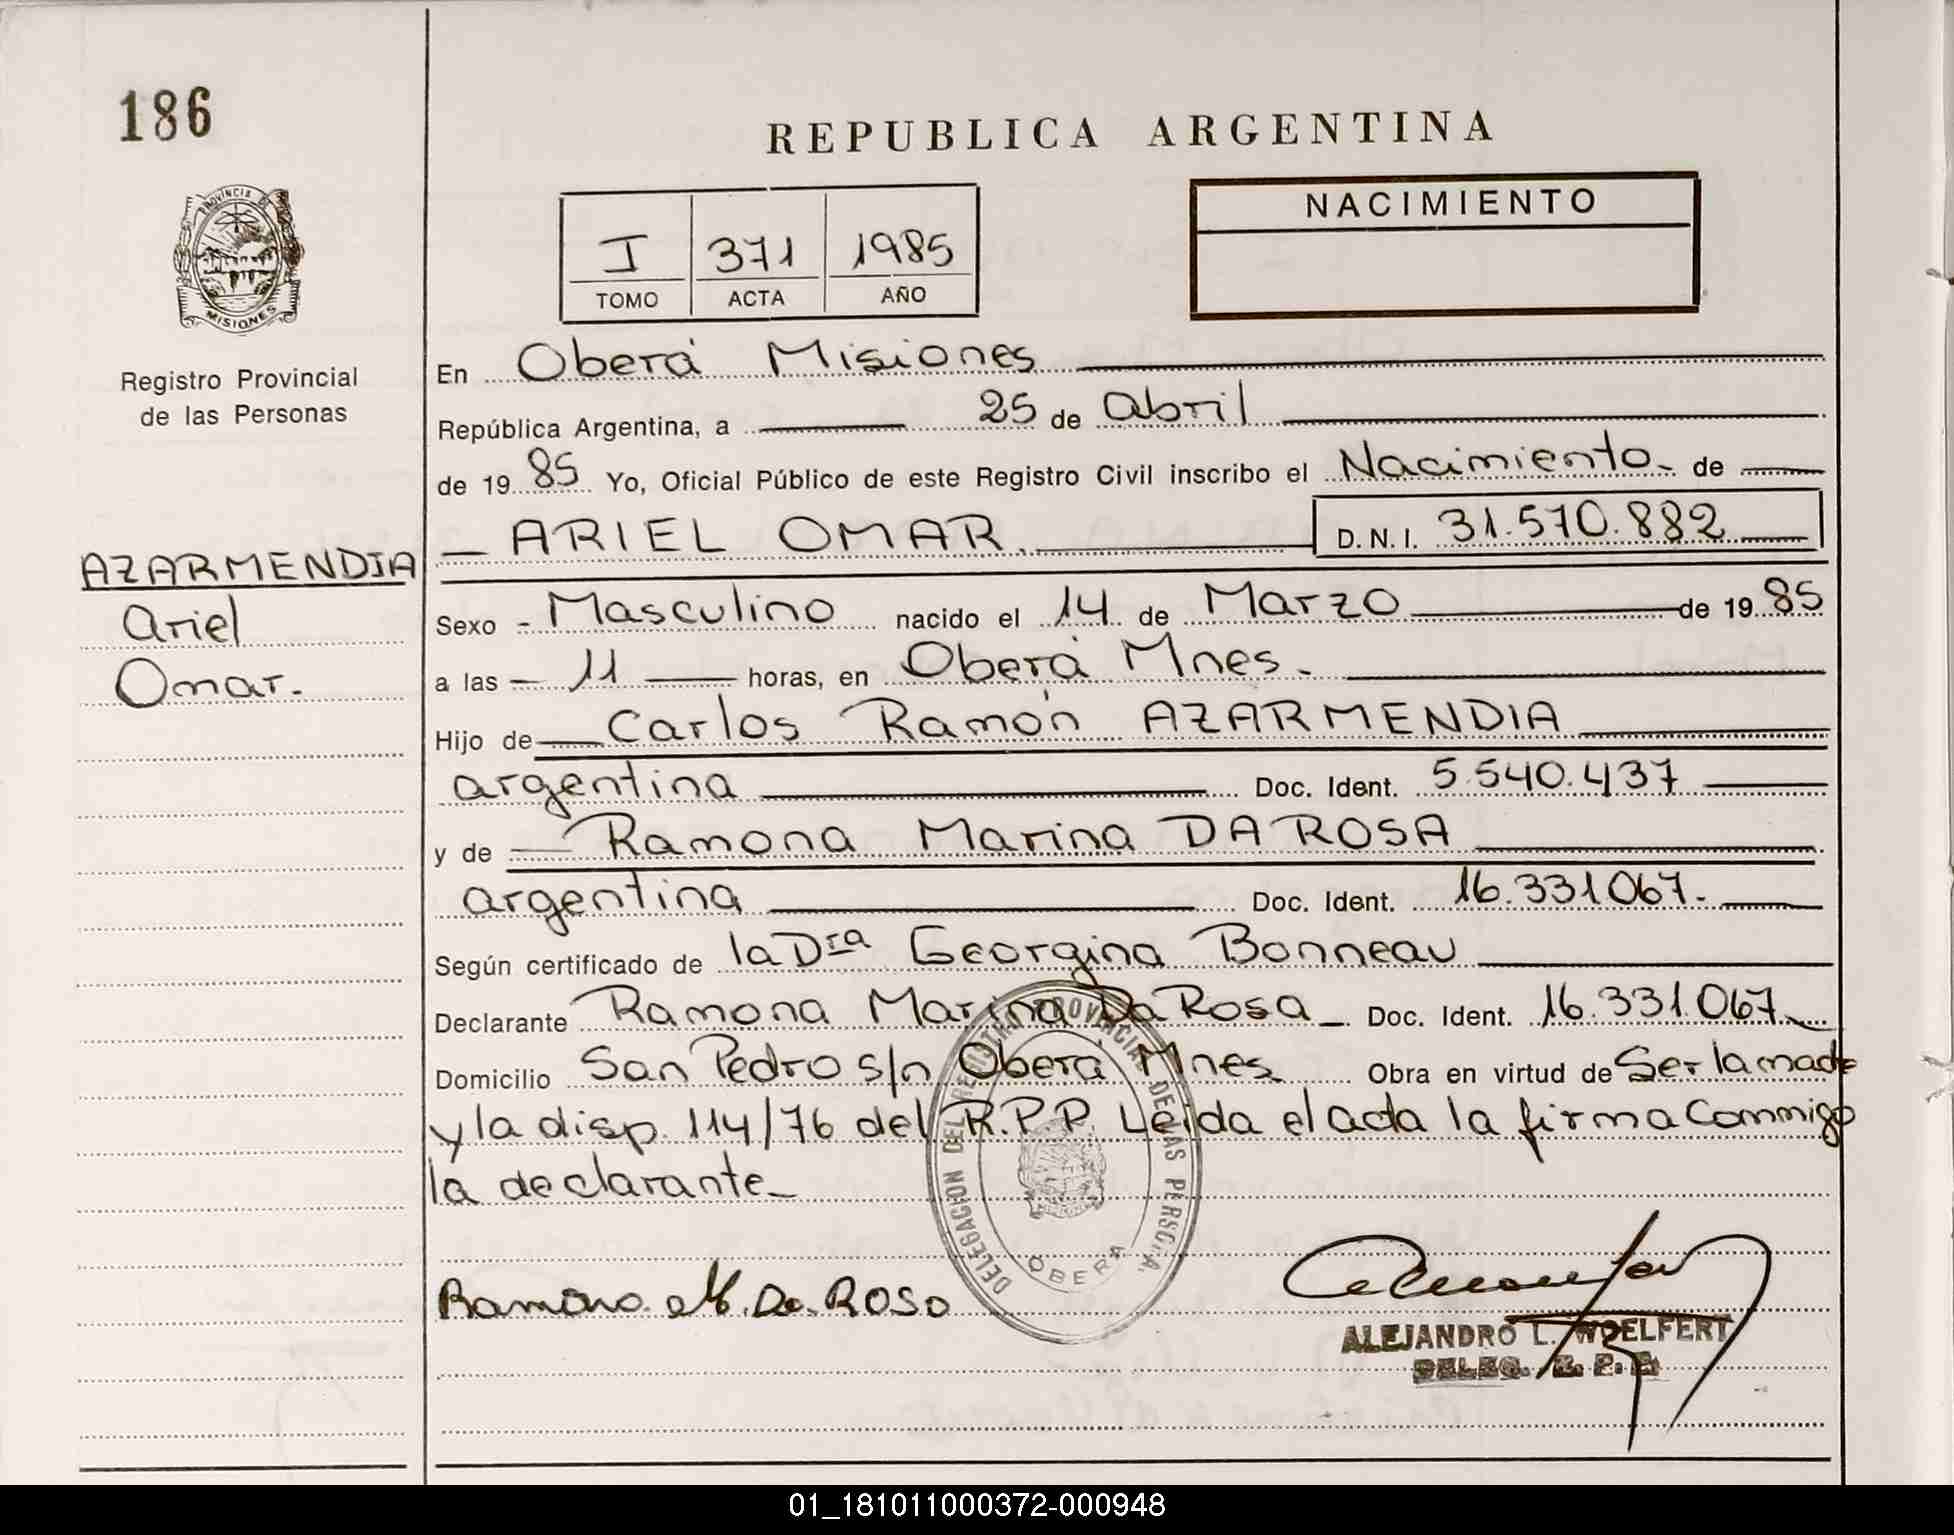 186
REPUBLICA ARGENTINA
PROVINCIA DE
MISIONES
Registro Provincial
de las Personas
I 371 1985
TOMO ACTA AÑO
NACIMIENTO
En Oberá Misiones
República Argentina, a 25 de abril
de 19 85 Yo, Oficial Público de este Registro Civil inscribo el Nacimiento de
AZARMENDIA
Ariel
Omar.
ARIEL OMAR. D.N.I. 31.570.882
Sexo - Masculino nacido el 14 de Marzo de 19 85
a las 11 horas, en Oberá Mnes.
Hijo de Carlos Ramón AZARMENDIA
argentina Doc. Ident. 5.540.437
y de Ramona Marina DA ROSA
argentina Doc. Ident. 16.331067.
Según certificado de la Dra Georgina Bonneau
Declarante Ramona Marina Da Rosa Doc. Ident. 16.331.067
Domicilio San Pedro s/n Oberá Mnes Obra en virtud de Ser la madre
y la disp. 114/76 del R.P.P. Leida el acta la firma Conmigo
la declarante
DELEGACION DEL REGISTRO PROVINCIAL DE LAS PERSONAS
OBERA
Ramona M. Da Rosa
ALEJANDRO L. WOELFERT
DELEG. R. P. P.
01_181011000372-000948